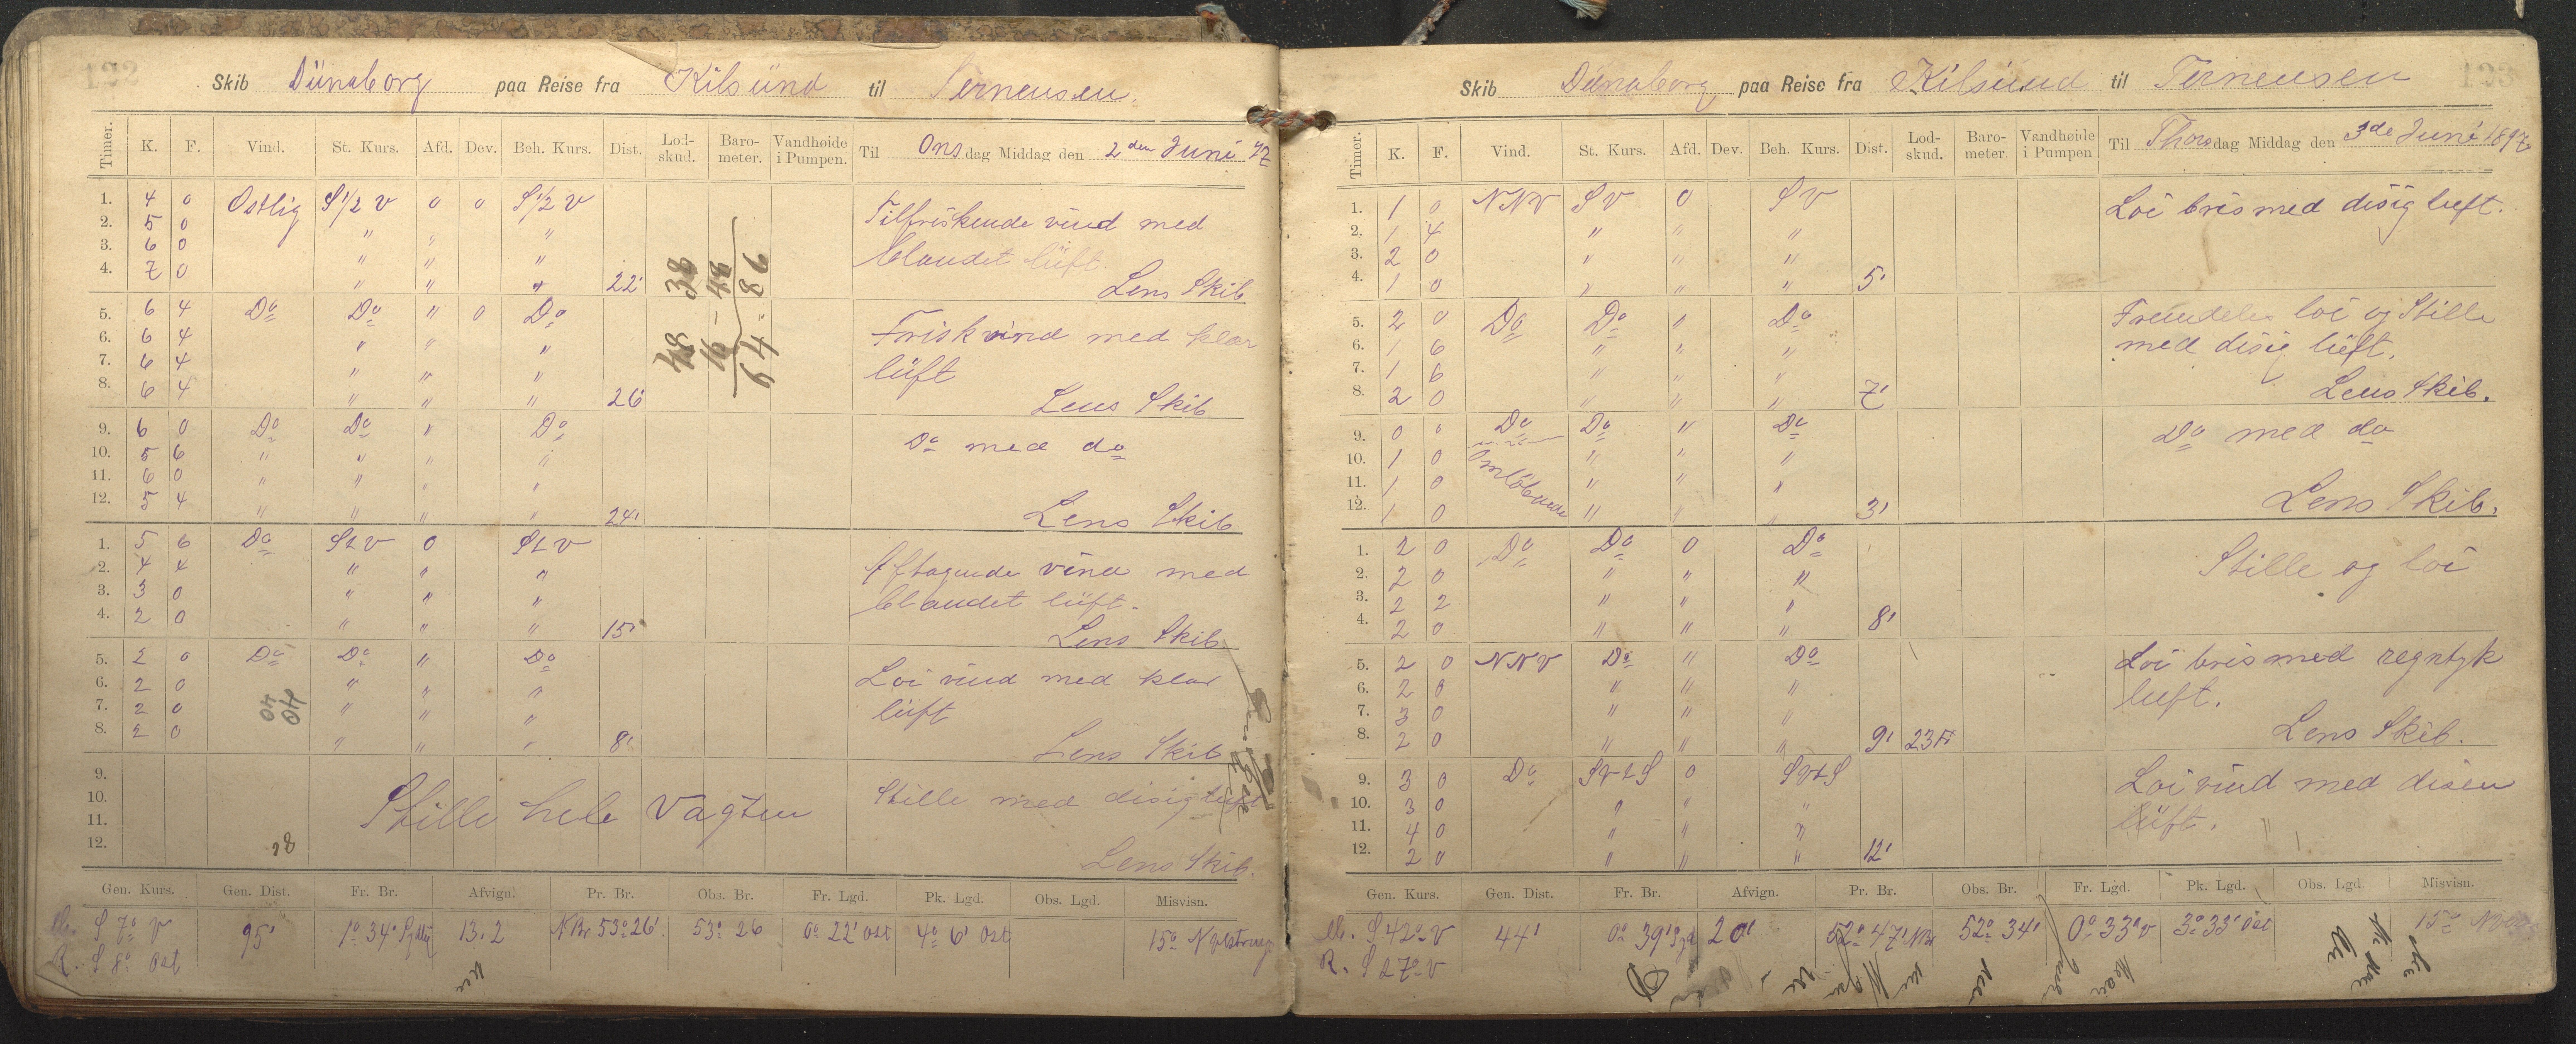 122
Skib Dünaborg paa Reise fra Kilsünd til Terneusen.
Timer. K. F. Vind. St. Kurs. Afd. Dev. Beh. Kurs. Dist. Lod-skud. Baro-meter. Vandhøide i Pumpen. Til Onsdag Middag den 2den Juni 97
1. 4 0 Ostlig S 1/2 V 0 0 S 1/2 V Tilfriskende vind med
2. 5 0 " " " blandet lüft.
3. 6 0 " " "
4. 7 0 " " " 22' Lens Skib
5. 6 4 Do Do " 0 Do Frisk vind med klar
6. 6 4 " " " lüft
7. 6 4 " " "
8. 6 4 " " " 26' Lens Skib
9. 6 0 Do Do " Do Do med do
10. 5 6 " " " "
11. 6 0 " " " "
12. 5 4 " " " " 24' Lens Skib
1. 5 6 Do StV 0 StV Aftagende vind med
2. 4 4 " " " blandet lüft.
3. 3 0 " " "
4. 2 0 " " " 15' Lens Skib
5. 2 0 Do Do " Do Loi vind med klar
6. 2 0 " " " lüft
7. 2 0 " " "
8. 2 0 " " " 8' Lens Skib
9.
10. Stille hele Vagten Stille med disig luft
11.
12. Lens Skib.
38 48 86
48 16 64
40 40
28
Gen. Kurs. Gen. Dist. Fr. Br. Afvign. Pr. Br. Obs. Br. Fr. Lgd. Pk. Lgd. Obs. Lgd. Misvisn.
S 7o V 95' 1o 34' 13.2 N Br 53o 26' 53o 26 0o 22' Ost 4o 6' Ost 15o
R. S 8o Ost
123
Skib Dünaborg paa Reise fra Kilsund til Terneusen
Timer. K. F. Vind. St. Kurs. Afd. Dev. Beh. Kurs. Dist. Lod-skud. Baro-meter. Vandhøide i Pumpen Til Thorsdag Middag den 3de Juni 1897
1. 1 0 NNV SV 0 SV Loi bris med disig luft.
2. 1 4 " " "
3. 2 0 " " "
4. 1 0 " " " 5'
5. 2 0 Do Do " Do Fremdeles loi og Stille
6. 1 6 " " " med disig lüft.
7. 1 6 " " "
8. 2 0 " " " 7' Lens Skib.
9. 0 0 Do Do " Do Do med do
10. 1 0 Omlöbende " " "
11. 1 0 " " "
12. 1 0 " " " 3' Lens Skib.
1. 2 0 Do Do 0 Do Stille og loi
2. 2 0 " " "
3. 2 2 " " "
4. 2 0 " " " 8'
5. 2 0 NNV Do " Do Loi bris med regntyk
6. 2 0 " " " luft.
7. 3 0 " " "
8. 2 0 " " " 9' 23 Lens Skib.
9. 3 0 Do SVtS 0 SVtS Loi vind med disen
10. 3 0 " " " lüft.
11. 4 0 " " "
12. 2 0 " " " 12'
Gen. Kurs. Gen. Dist. Fr. Br. Afvign. Pr. Br. Obs. Br. Fr. Lgd. Pk. Lgd. Obs. Lgd. Misvisn.
S 42o V 44' 0o 39' 52o 47' NBr 52o 34' 0o 33' V 3o 33' Ost 15o
R. S 27o V